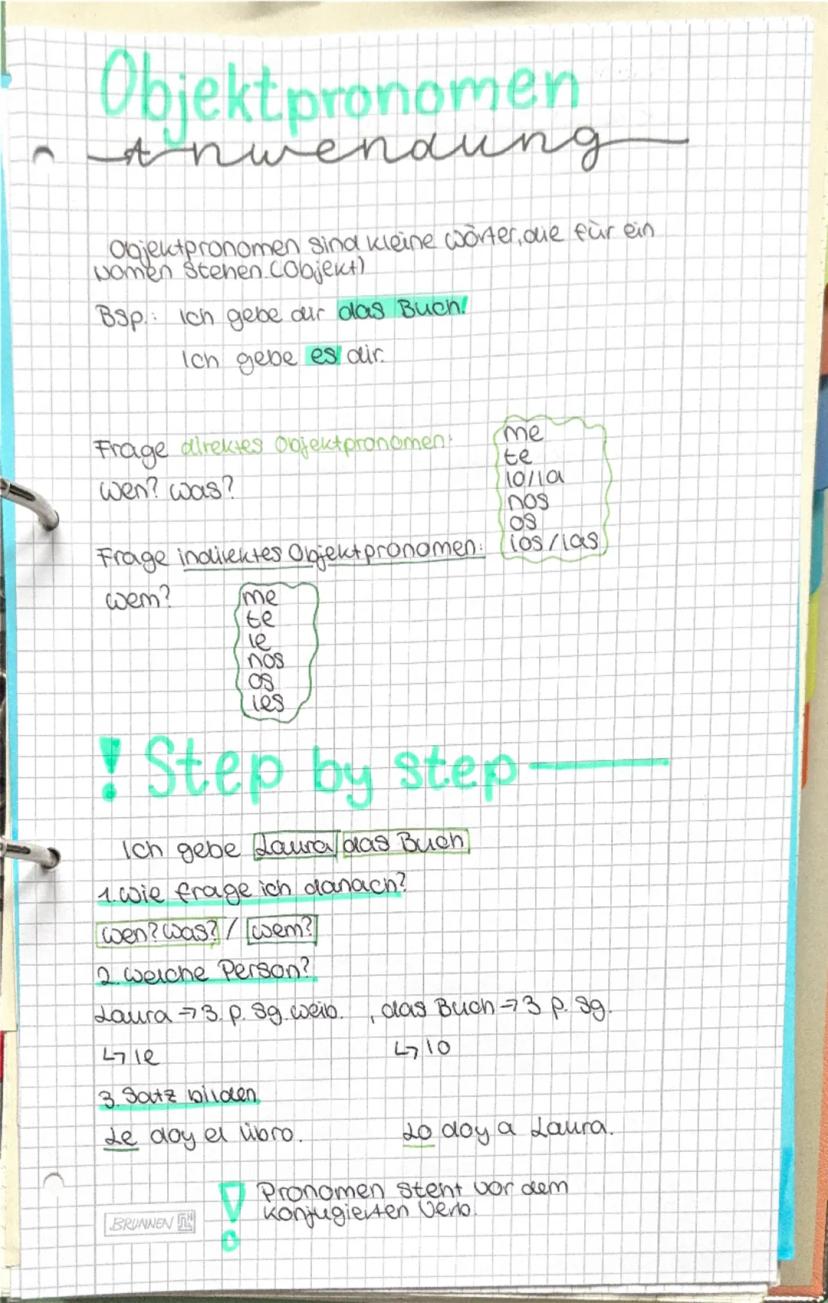 Objektpronomen
Anwendung
Objektpronomen sind kleine Wörter, die für ein
Nomen stehen. (Objekt)
Bsp.: Ich gebe dir das Buch.
Ich gebe es dir.
Frage direktes Objektpronomen:
wen? was?
me
te
lo/la
nos
os
los/las
Frage indirektes Objektpronomen:
wem?
me
te
le
nos
os
les
! Step by step
Ich gebe Laura das Buch
1. Wie frage ich danach?
wen? was? / wem?
2. Welche Person?
Laura → 3. P. Sg. weib. , das Buch → 3 P. Sg.
↳ le ↳ lo
3. Satz bilden
Le doy el libro. Lo doy a Laura.
! Pronomen steht vor dem
konjugierten Verb.
BRUNNEN